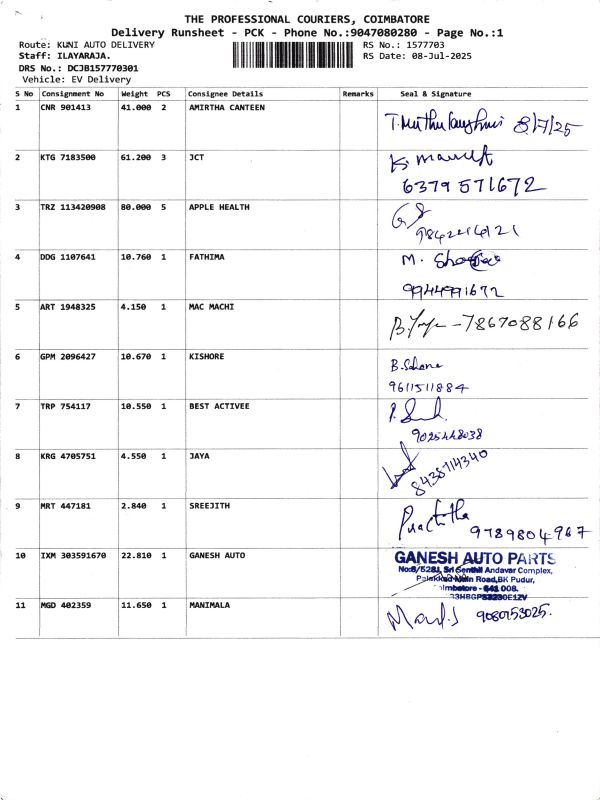 THE PROFESSIONAL COURIERS, COIMBATORE
Delivery Runsheet - PCK - Phone No.:9047080280 - Page No.:1
Route: KUNI AUTO DELIVERY RS No.: 1577703
Staff: ILAYARAJA. RS Date: 08-Jul-2025
DRS No.: DCJB157770301
Vehicle: EV Delivery
S No Consignment No Weight PCS Consignee Details Remarks Seal & Signature
1 CNR 901413 41.000 2 AMIRTHA CANTEEN
8/7/25
2 KTG 7183500 61.200 3 JCT
6379 571672
3 TRZ 113420908 80.000 5 APPLE HEALTH
4 DDG 1107641 10.760 1 FATHIMA
M.
5 ART 1948325 4.150 1 MAC MACHI
-7867088166
6 GPM 2096427 10.670 1 KISHORE
9611511884
7 TRP 754117 10.550 1 BEST ACTIVEE
9025448038
8 KRG 4705751 4.550 1 JAYA
8438714340
9 MRT 447181 2.840 1 SREEJITH
9789804967
10 IXM 303591670 22.810 1 GANESH AUTO
GANESH AUTO PARTS
Sri Senthil Andavar Complex,
Main Road, BK Pudur,
11 MGD 402359 11.650 1 MANIMALA
9080753025.